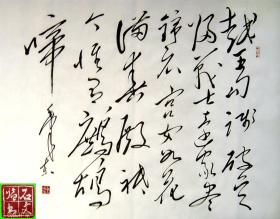 越王勾践破吴
归战士还家尽
锦衣宫女如花
满春殿祇
今惟有鹧鸪
啼